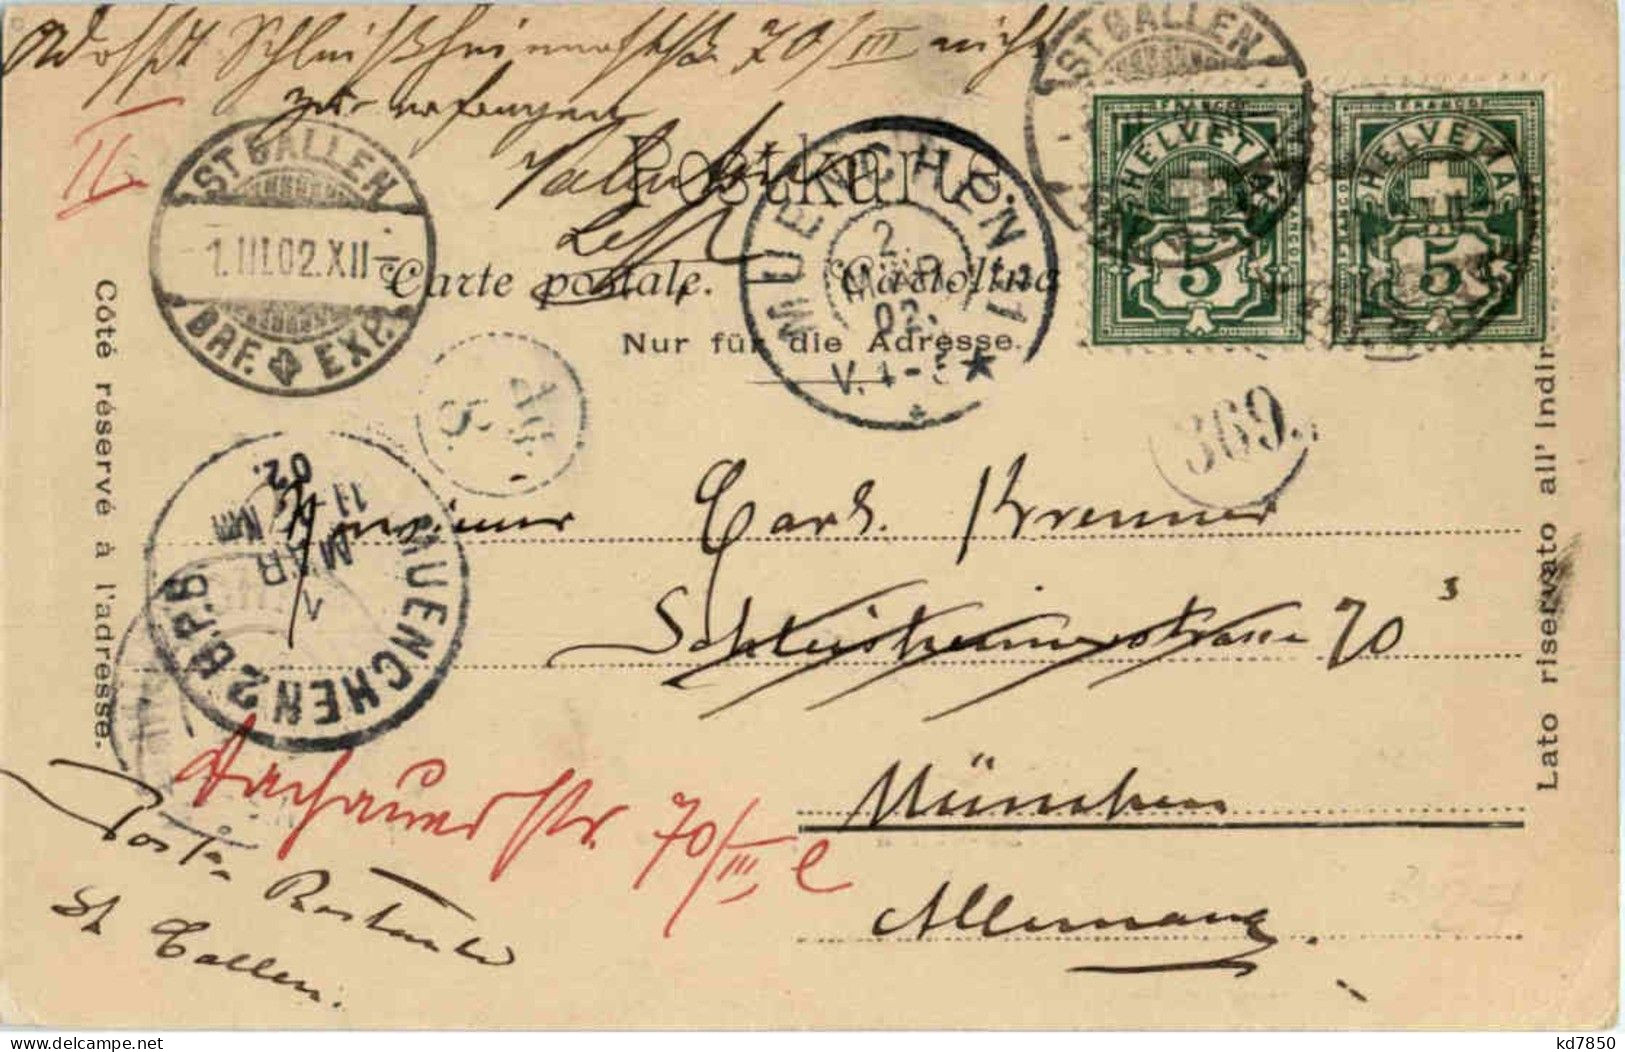 Schleißheimerstr. 70/III nicht
zu erfragen
II.
Postkarte.
Carte postale. Cartolina
Nur für die Adresse.
Côté réservé à l'adresse.
Lato riservato all' indir
ST. GALLEN
1.III.02.XII-
BRF. EXP.
MUENCHEN
2
MAR
02.
ST. GALLEN
FRANCO
HELVETIA
FRANCO
5
FRANCO
HELVETIA
FRANCO
5
369.
MUENCHEN 2 B.P.B
1
MAR
11-
02.
Monsieur Carl Krenner
Schleisheimerstrasse 70 3
München
Allemagne
Dachauerstr. 70/III, l
Poste Restante
St Gallen.
kd7850